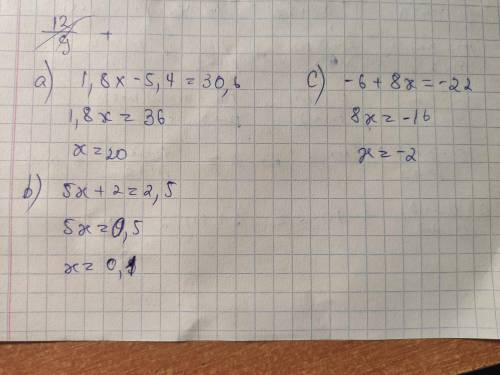 12/9 +
a) 1,8x - 5,4 = 30,6
1,8x = 36
x = 20
b) 5x + 2 = 2,5
5x = 0,5
x = 0,1
c) -6 + 8x = -22
8x = -16
x = -2